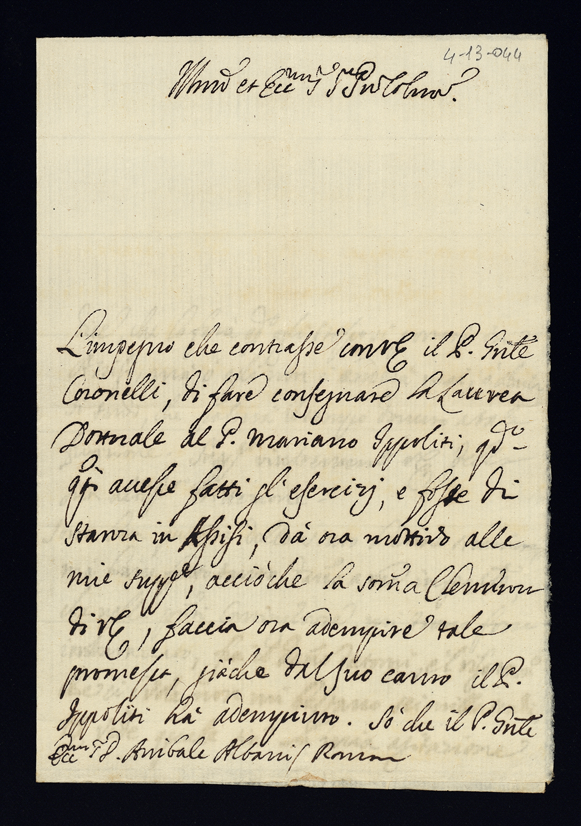 4-13-044
Ill.mo et Ecc.mo Sig.r Sig.r P.ron Col.mo
L'impegno che contrasse con VE il P. Gn̄le
Coronelli, di fare consegnare la Laurea
Dottorale al P. Mariano Ippoliti, qd.o
q̄sti avesse fatti gl'esercizj, e fosse di
stanza in Assisi, dà ora motivo alle
mie supp.e, acciòche la som̄a Clemenza
di VE, faccia ora adempire tale
promessa, giàche dal suo canto il P.
Ippoliti hà adempiuto. Sò che il P. Gn̄le
Ecc.mo Sr D. Anibale Albani / Roma